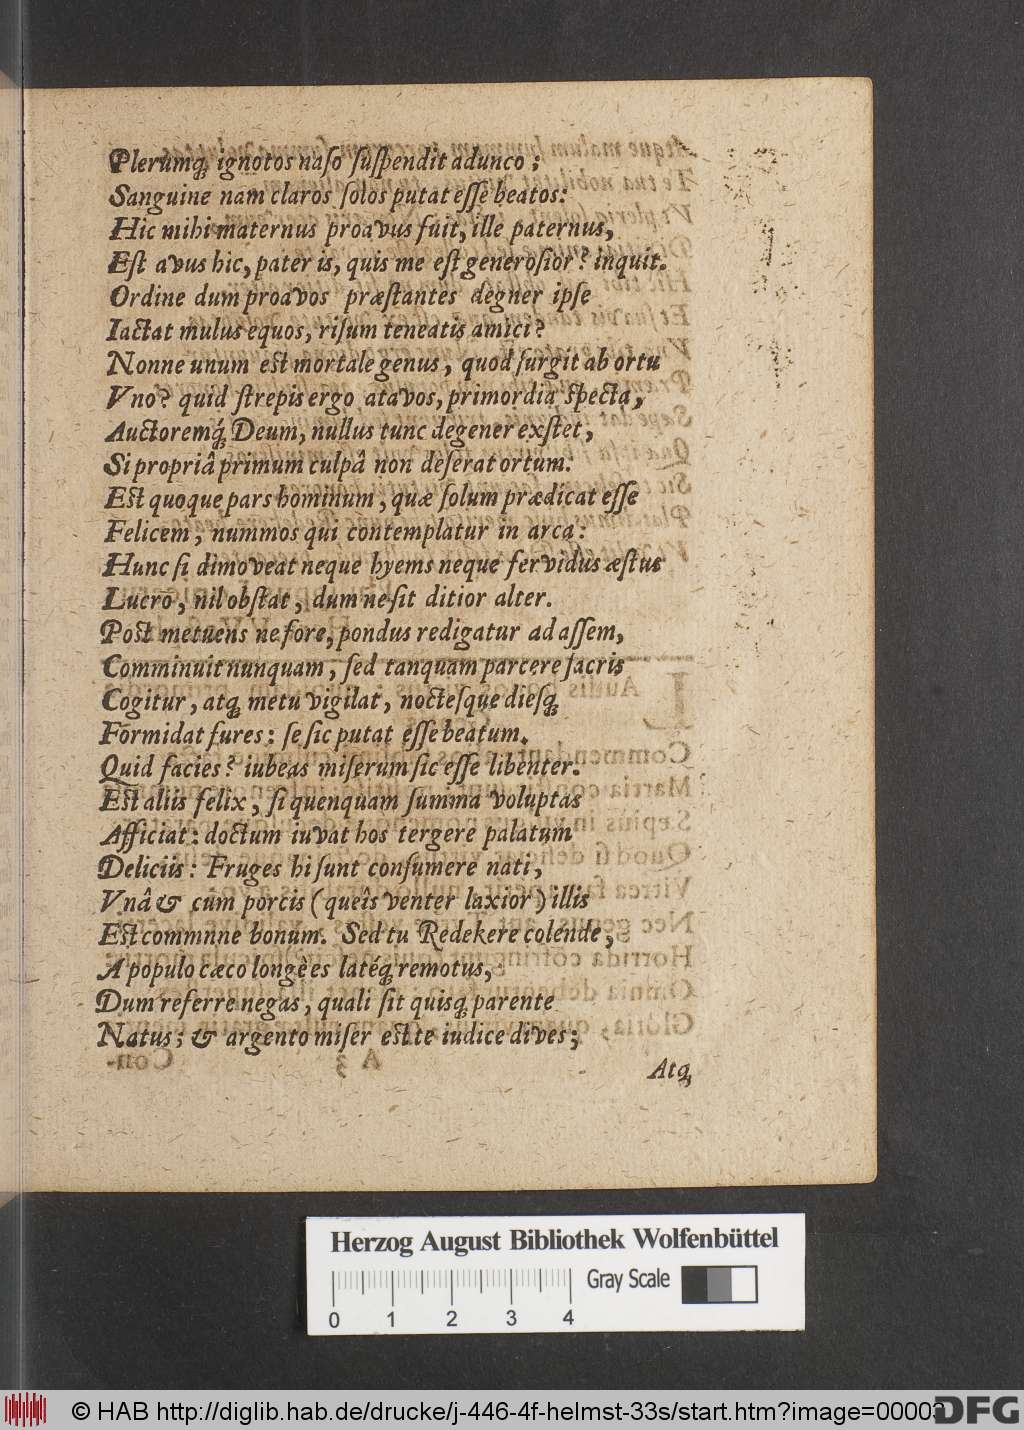 Plerumq́; ignotos naſo ſuſpendit adunco;
Sanguine nam claros ſolos putat eſſe beatos:
Hic mihi maternus proavus fuit, ille paternus,
Eſt avus hic, pater is, quis me eſt generoſior? inquit.
Ordine dum proavos præſtantes degner ipſe
Iactat mulus equos, riſum teneatis amici?
Nonne unum eſt mortale genus, quod ſurgit ab ortu
Vno? quid ſtrepis ergo atavos, primordia ſpecta,
Auctoremq́; Deum, nullus tunc degener exſtet,
Si propriâ primum culpâ non deſerat ortum.
Eſt quoque pars hominum, quæ ſolum prædicat eſſe
Felicem, nummos qui contemplatur in arca:
Hunc ſi dimoveat neque hyems neque fervidus æſtus
Lucro, nil obſtat, dum ne ſit ditior alter.
Poſt metuens ne fore, pondus redigatur ad aſſem,
Comminuit nunquam, ſed tanquam parcere ſacris
Cogitur, atq; metu vigilat, nocteſque dieſq;
Formidat fures: ſe ſic putat eſſe beatum.
Quid facies? iubeas miſerum ſic eſſe libenter.
Eſt aliis felix, ſi quenquam ſumma voluptas
Afficiat: doctum iuvat hos tergere palatum
Deliciis: Fruges hi ſunt conſumere nati,
Vnâ & cum porcis (queîs venter laxior) illis
Eſt commnne bonum. Sed tu Redekere colende,
A populo cæco longè es latéq; remotus,
Dum referre negas, quali ſit quisq; parente
Natus; & argento miſer eſt te iudice dives;
Atq;
Herzog August Bibliothek Wolfenbüttel
Gray Scale
0 1 2 3 4
© HAB http://diglib.hab.de/drucke/j-446-4f-helmst-33s/start.htm?image=00003
DFG